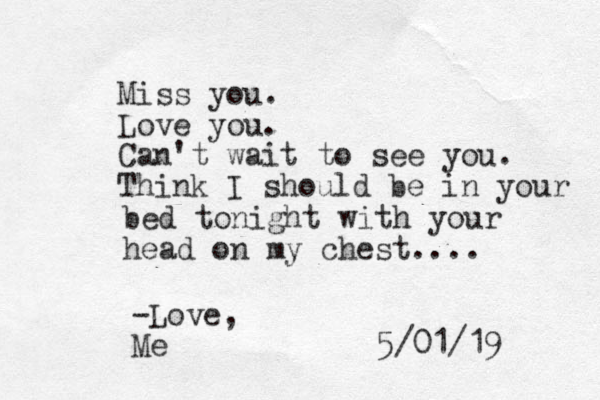 Miss you.
Love you.
Can't wait to see you.
Think I should be in your
bed tonight with your
head on my chest....
-Love,
Me 5/01/19